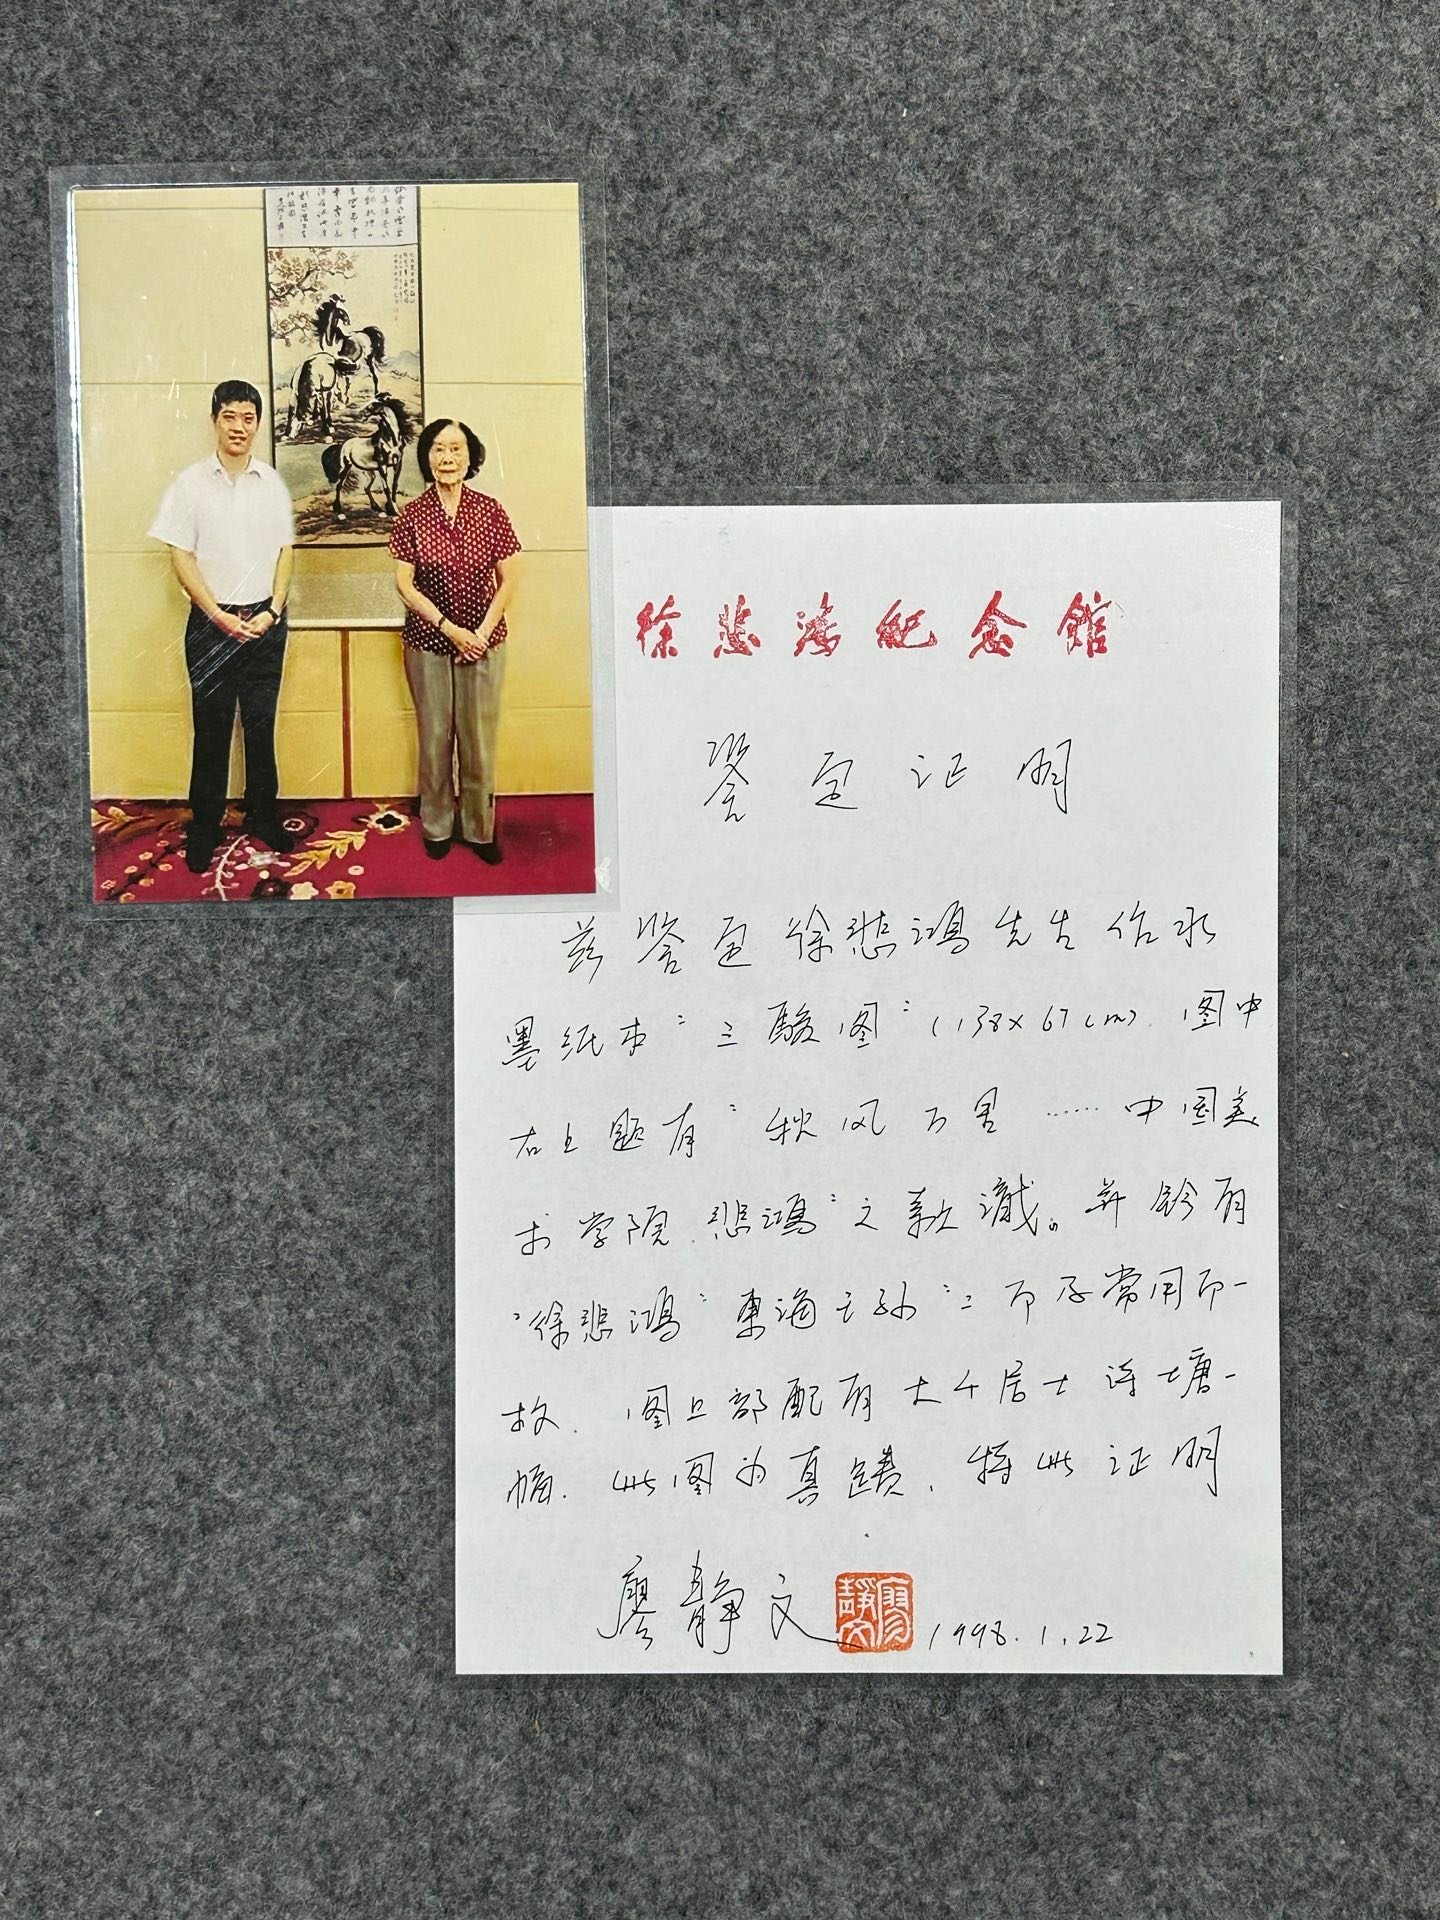 徐悲鸿纪念馆
鉴定证明
兹鉴定徐悲鸿先生作水
墨纸本"三骏图"(138×67cm).图中
右上题有"秋风万里……中国美
术学院.悲鸿"之款識。并鈐有
"徐悲鸿""東海王孙"二印.及常用印一
枚.图上部配有大千居士诗塘一
幅.此图为真蹟.特此证明
廖静文 廖靜文 1998.1.22